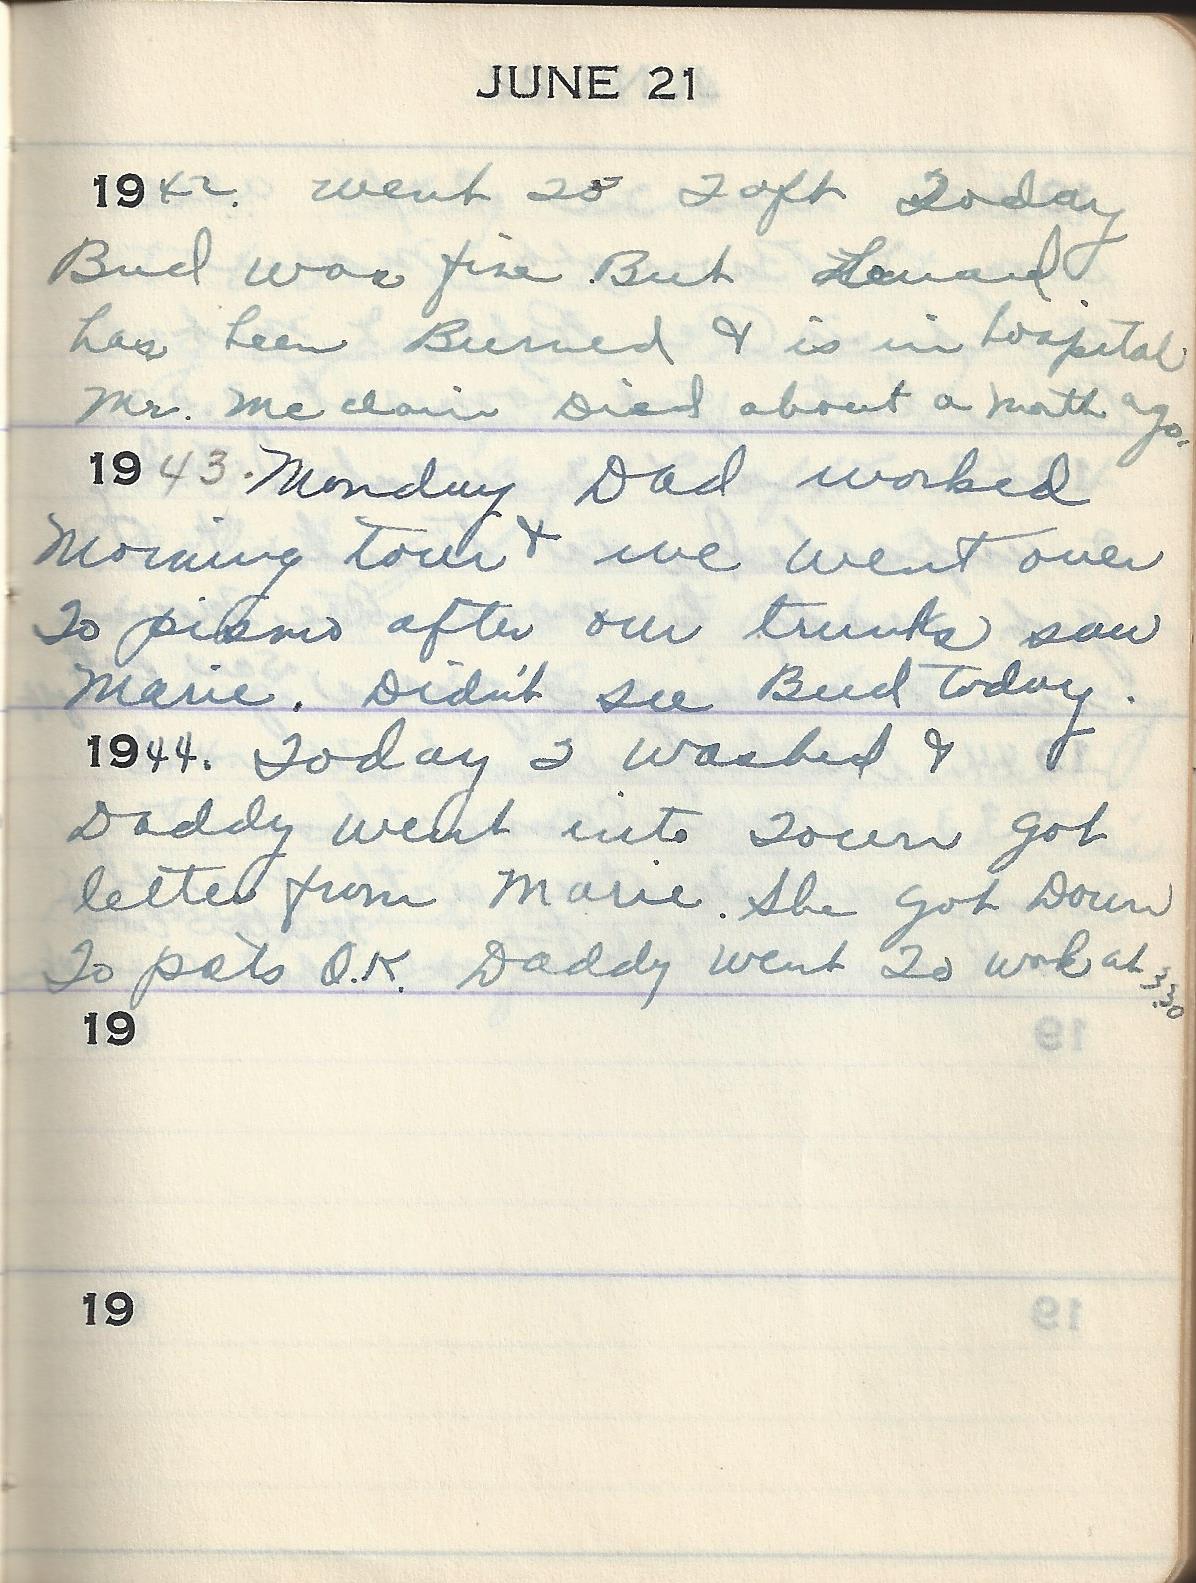 JUNE 21
1942. Went to Taft Today
Bud was fine. But
has been Burned & is in hospital
Mr. McClain Died about a month ago.
1943. Monday Dad worked
Morning tour & we went over
To pismo after our trunks saw
Marie. Didn't see Bud today.
1944. Today I washed &
Daddy went into Town got
letter from Marie. She got Down
To pats O.K. Daddy went To work at 3:30
19
19